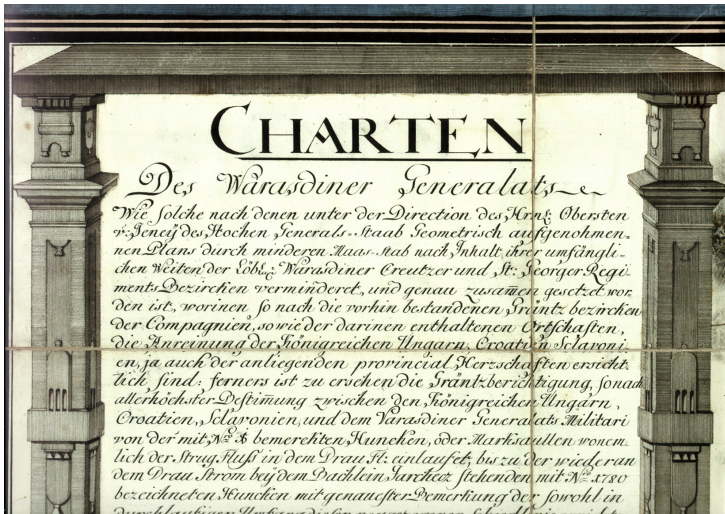 CHARTEN
Des Warasdiner Generalats
Wie solche nach denen unter der Direction des Hrn: Obersten
v: Jeneÿ des Hochen Generals-Staab Geometrisch aufgenohmen-
nen Plans durch minderen Maas-Stab nach Inhalt ihrer umfängli-
chen Weiten der Löbl: Warasdiner Creutzer und St: Georger Regi
ments Bezircken verminderet, und genau zusam̄en gesetzet wor
den ist, worinen so nach die vorhin bestandenen Gräntz bezircken
der Compagnien, sowie der darinen enthaltenen Ortschaften,
die Anreinung der Königreichen Ungarn, Croatien Sclavoni
en, ja auch der anliegenden provincial Herschaften ersicht
lich sind: ferners ist zu ersehen die Gräntzberichtigung, so nach
allerhöchster Bestim̄ung zwischen den Königreichen Ungarn,
Croatien, Sclavonien, und dem Varasdiner Generalats Militari
von der mit N:ro bemerckten Huncken, oder Marksaullen wonem
lich der Strug Fluß in dem Drau Fl: einlaufet, bis zu der wieder an
dem Drau Strom beÿ dem Bachlein stehenden mit N:ro 1780
bezeichneten Huncken mit genauester Bemerkung der sowohl in